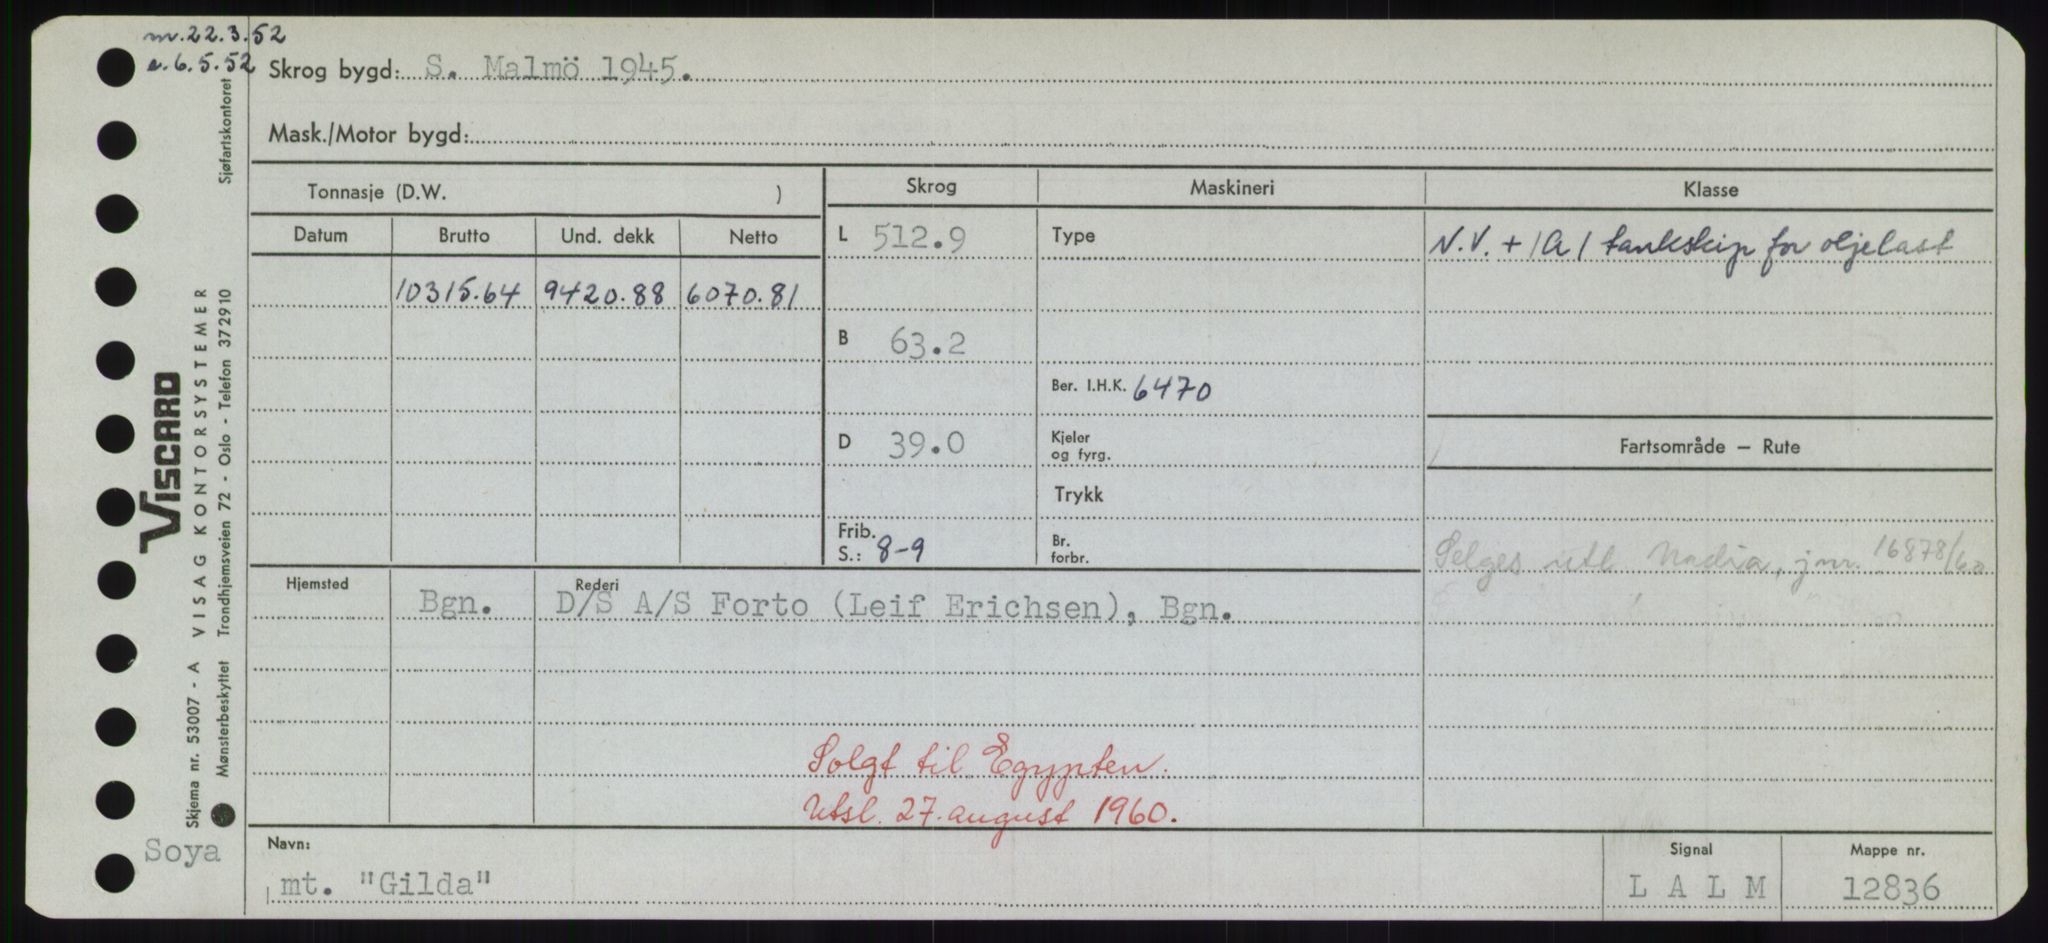 m.22.3.52
e.6.5.52
Skrog bygd: S. Malmö 1945.
Mask./Motor bygd:
Tonnasje (D.W. )
Skrog
Maskineri
Klasse
Datum
Brutto
Und. dekk
Netto
L 512.9
Type
N.V. + 1A1 tankskip for oljelast
10315.64
9420.88
6070.81
B 63.2
Ber. I.H.K. 6470
D 39.0
Kjeler
og fyrg.
Fartsområde — Rute
Trykk
Frib.
S.: 8-9
Br.
forbr.
Selges utl. Nadia, jnr. 16878/60
Hjemsted
Rederi
Bgn.
D/S A/S Forto (Leif Erichsen), Bgn.
Solgt til Egypten.
Utsl. 27. august 1960.
Navn:
mt. "Gilda"
Signal
L A L M
Mappe nr.
12836
Soya
VISCARD
Skjema nr. 53007 - A VISAG KONTORSYSTEMER
Mønsterbeskyttet Trondhjemsveien 72 - Oslo - Telefon 372910
Sjøfartskontoret